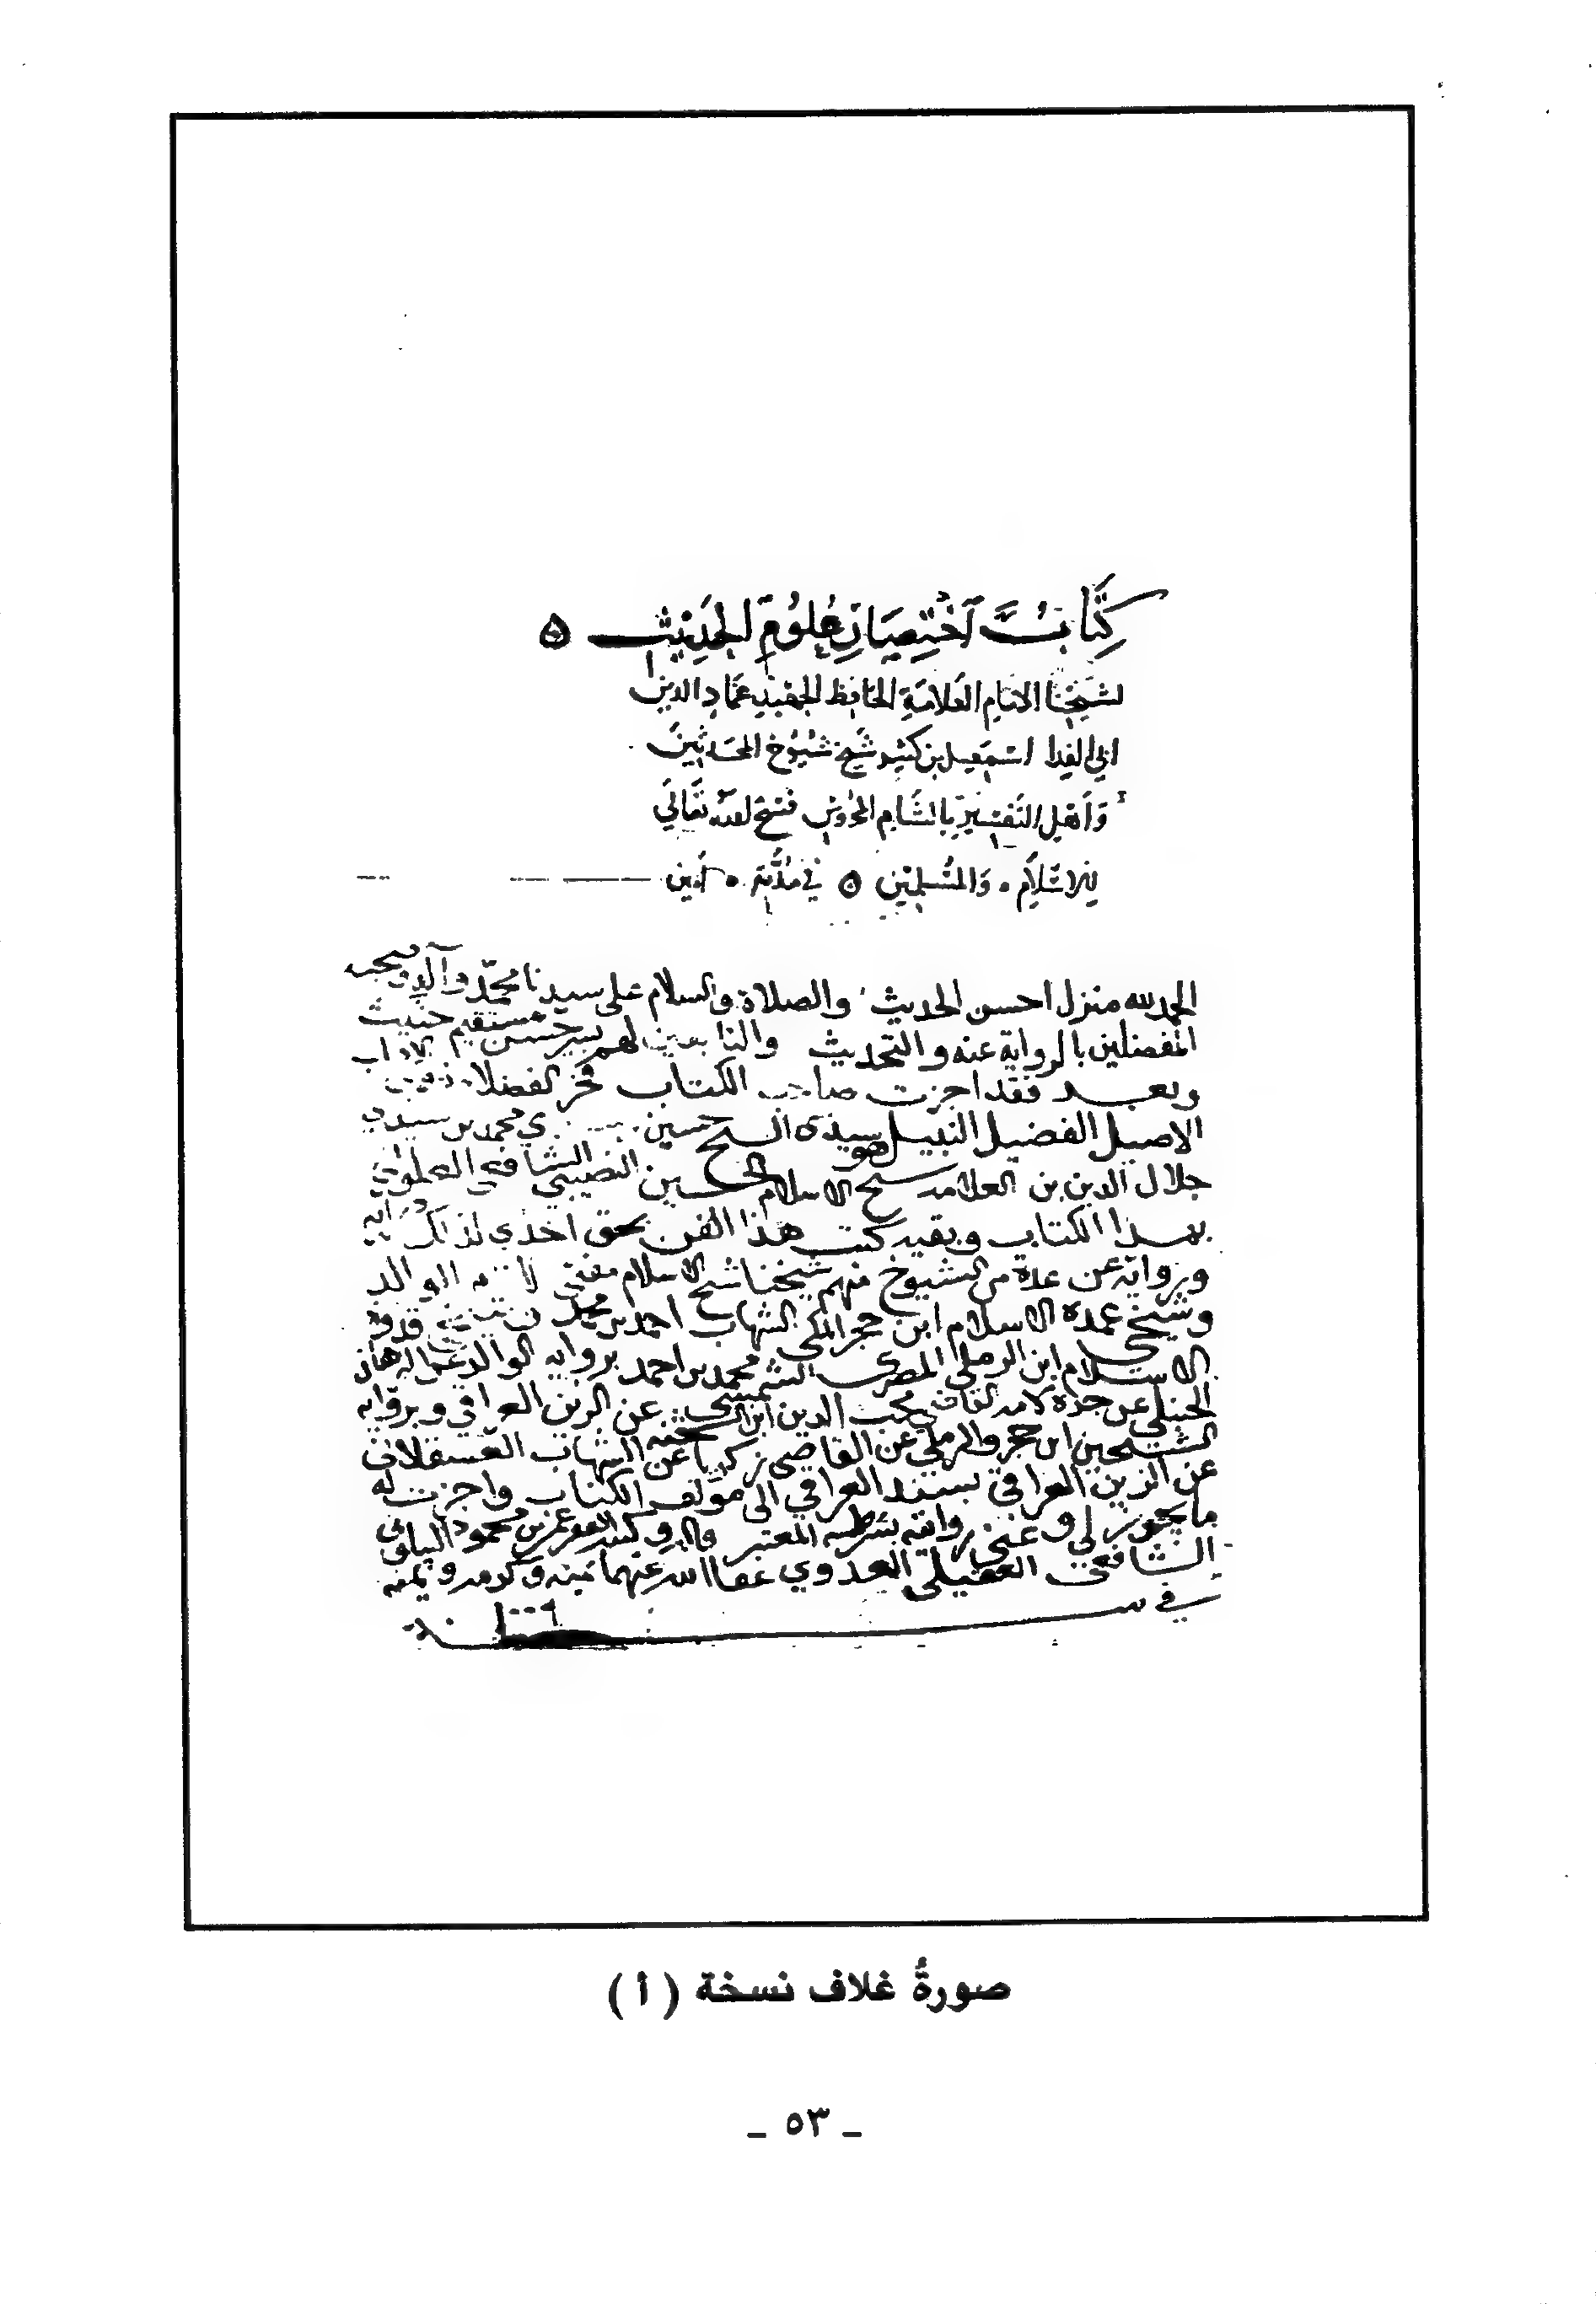 كِتَابُ اخْتِصَارِ عُلُومِ الحَدِيْثِ ه
لشيخنا الامام العَلامَةِ الحَافِظ عمَاد الدين
ابي الفدا اسمعيل بن كثير شيخ شُيُوخ المحَدثينَ
وَاَهْلِ التَفسِيرِ بالشام المحروس فسَح الله تعَالَي
للاسْلَامِ . وَالمُسْلِمِيْنَ ه في مُدَّتِهِ . آمين
الحمد لله منزل احسن الحديث والصلاة والسلام على سيدنا محمّد وآله وصحبه
المفضلين بالرواية عنه والتحديث والتابعين لهم بسير حسن مستقيم حثيث
وبعد فقد اجزت صاحب الكتاب فخر الفضلا
الاصيل الفضيل النبيل سيدي الشيخ حسين محمد بن سيدي
جلال الدين بن العلامه شيخ الاسلام الحسين النصيبي الشافعي
بهذا الكتاب وبقيه كتب هذا الفن بحق اخذي لذلك
وروايه عن عدة من الشيوخ منهم شيخنا شيخ الاسلام مفتي الوالد
وشيخي عمدة الاسلام ابن حجر المكي الشهاب احمد بن محمد قدوة
الاسلام ابن الرملي المصري الشمس محمد بن احمد بروايه الوالد عن
الحنبلي عن جده محب الدين ابن الشحنه عن الزين العراقي وبروايه
الشيخين ابن حجر والرملي عن القاضي زكريا عن الشهاب العسقلاني
عن الزين العراقي بسند العراقي الى مؤلف الكتاب واجزت له
ما يجوز لي وعني روايته بشرطه المعتبر قاله وكتبه الفقير عمر بن محمود
الشافعي العقيلي العدوي عفا الله عنهما بمنه وكرمه ويمنه
في سنة
صورةُ غلاف نسخة ( أ )
ـ ٥٣ ـ